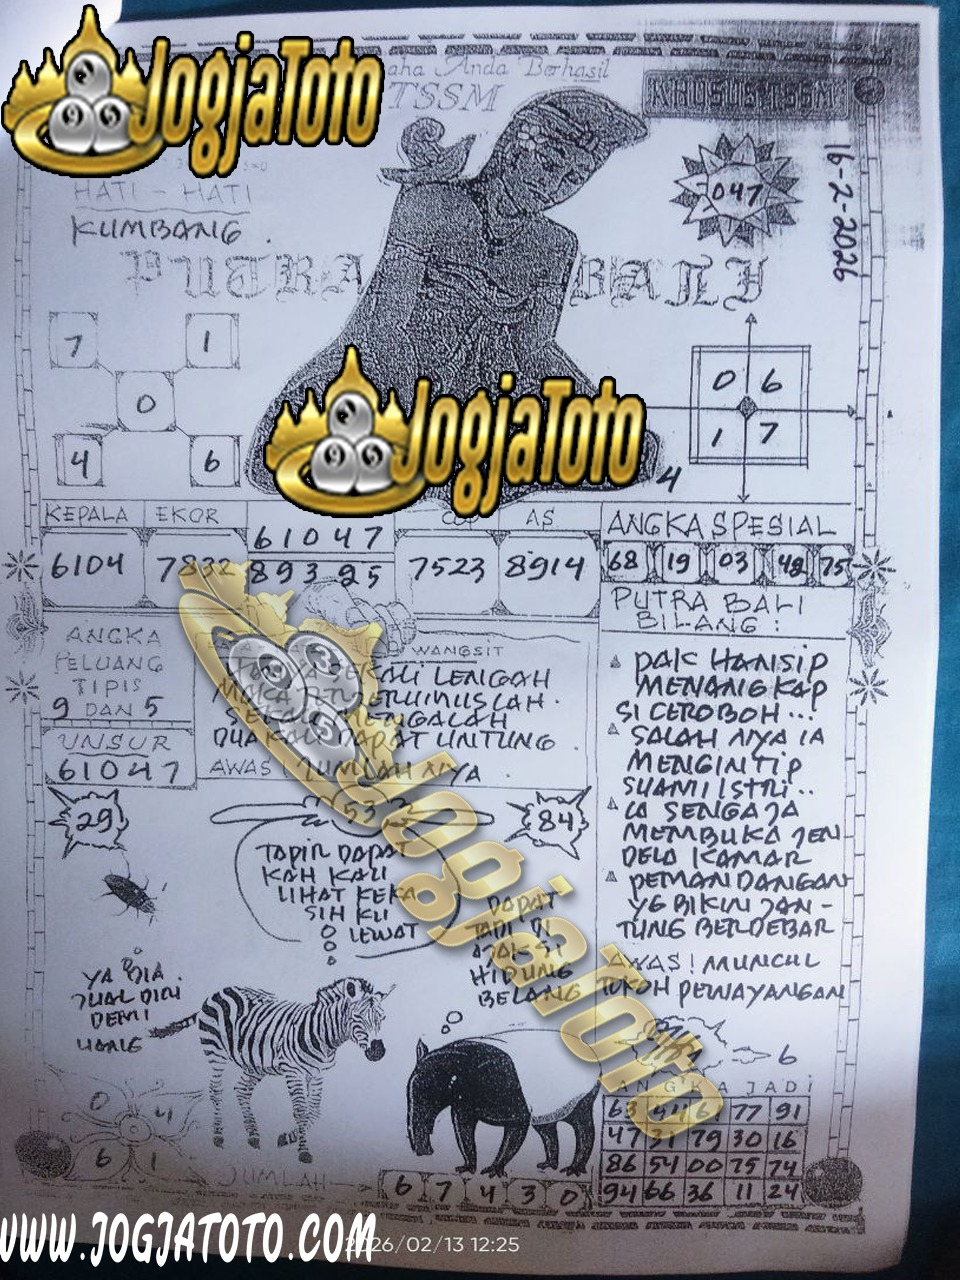 JogjaToto
Anda Berhasil
TSSM
KHUSUS TSSM
HATI - HATI
KUMBANG
047
16-2-2026
PUTRA BALI
7 1
0
4 6
0 6
1 7
JogjaToto
4
KEPALA EKOR
61047
AS
ANGKA SPESIAL
6104 7832 893 25 7523 8914
68 19 03 48 75
PUTRA BALI
BILANG :
ANGKA
PELUANG
TIPIS
9 DAN 5
UNSUR
61047
WANGSIT
KALI LENGAH
MAKA
MENGALAH
DUA KALI DAPAT UNTUNG
AWAS! JUMLAH NYA
PAK HANSIP
MENANGKAP
SI CEROBOH ...
SALAH NYA IA
MENGINTIP
SUAMI ISTRI..
IA SENGAJA
MEMBUKA JEN
DELA KAMAR
PEMANDANGAN
YG BIKIN JAN -
TUNG BERDEBAR
AWAS! MUNCUL
TOKOH PEWAYANGAN
29
53
84
TAPIR DAPAT
KAH KAU
LIHAT KEKA
SIH KU
LEWAT
DAPAT
TADI DI
AJAK SI
HIDUNG
BELANG
YA DIA
JUAL DIRI
DEMI
UANG
JogjaToto
6
ANGKA JADI
63 44 61 77 91
47 31 79 30 16
86 54 00 75 74
94 66 36 11 24
0 4
6 1
JUMLAH
6 7 4 3 0
WWW.JOGJATOTO.COM
2026/02/13 12:25